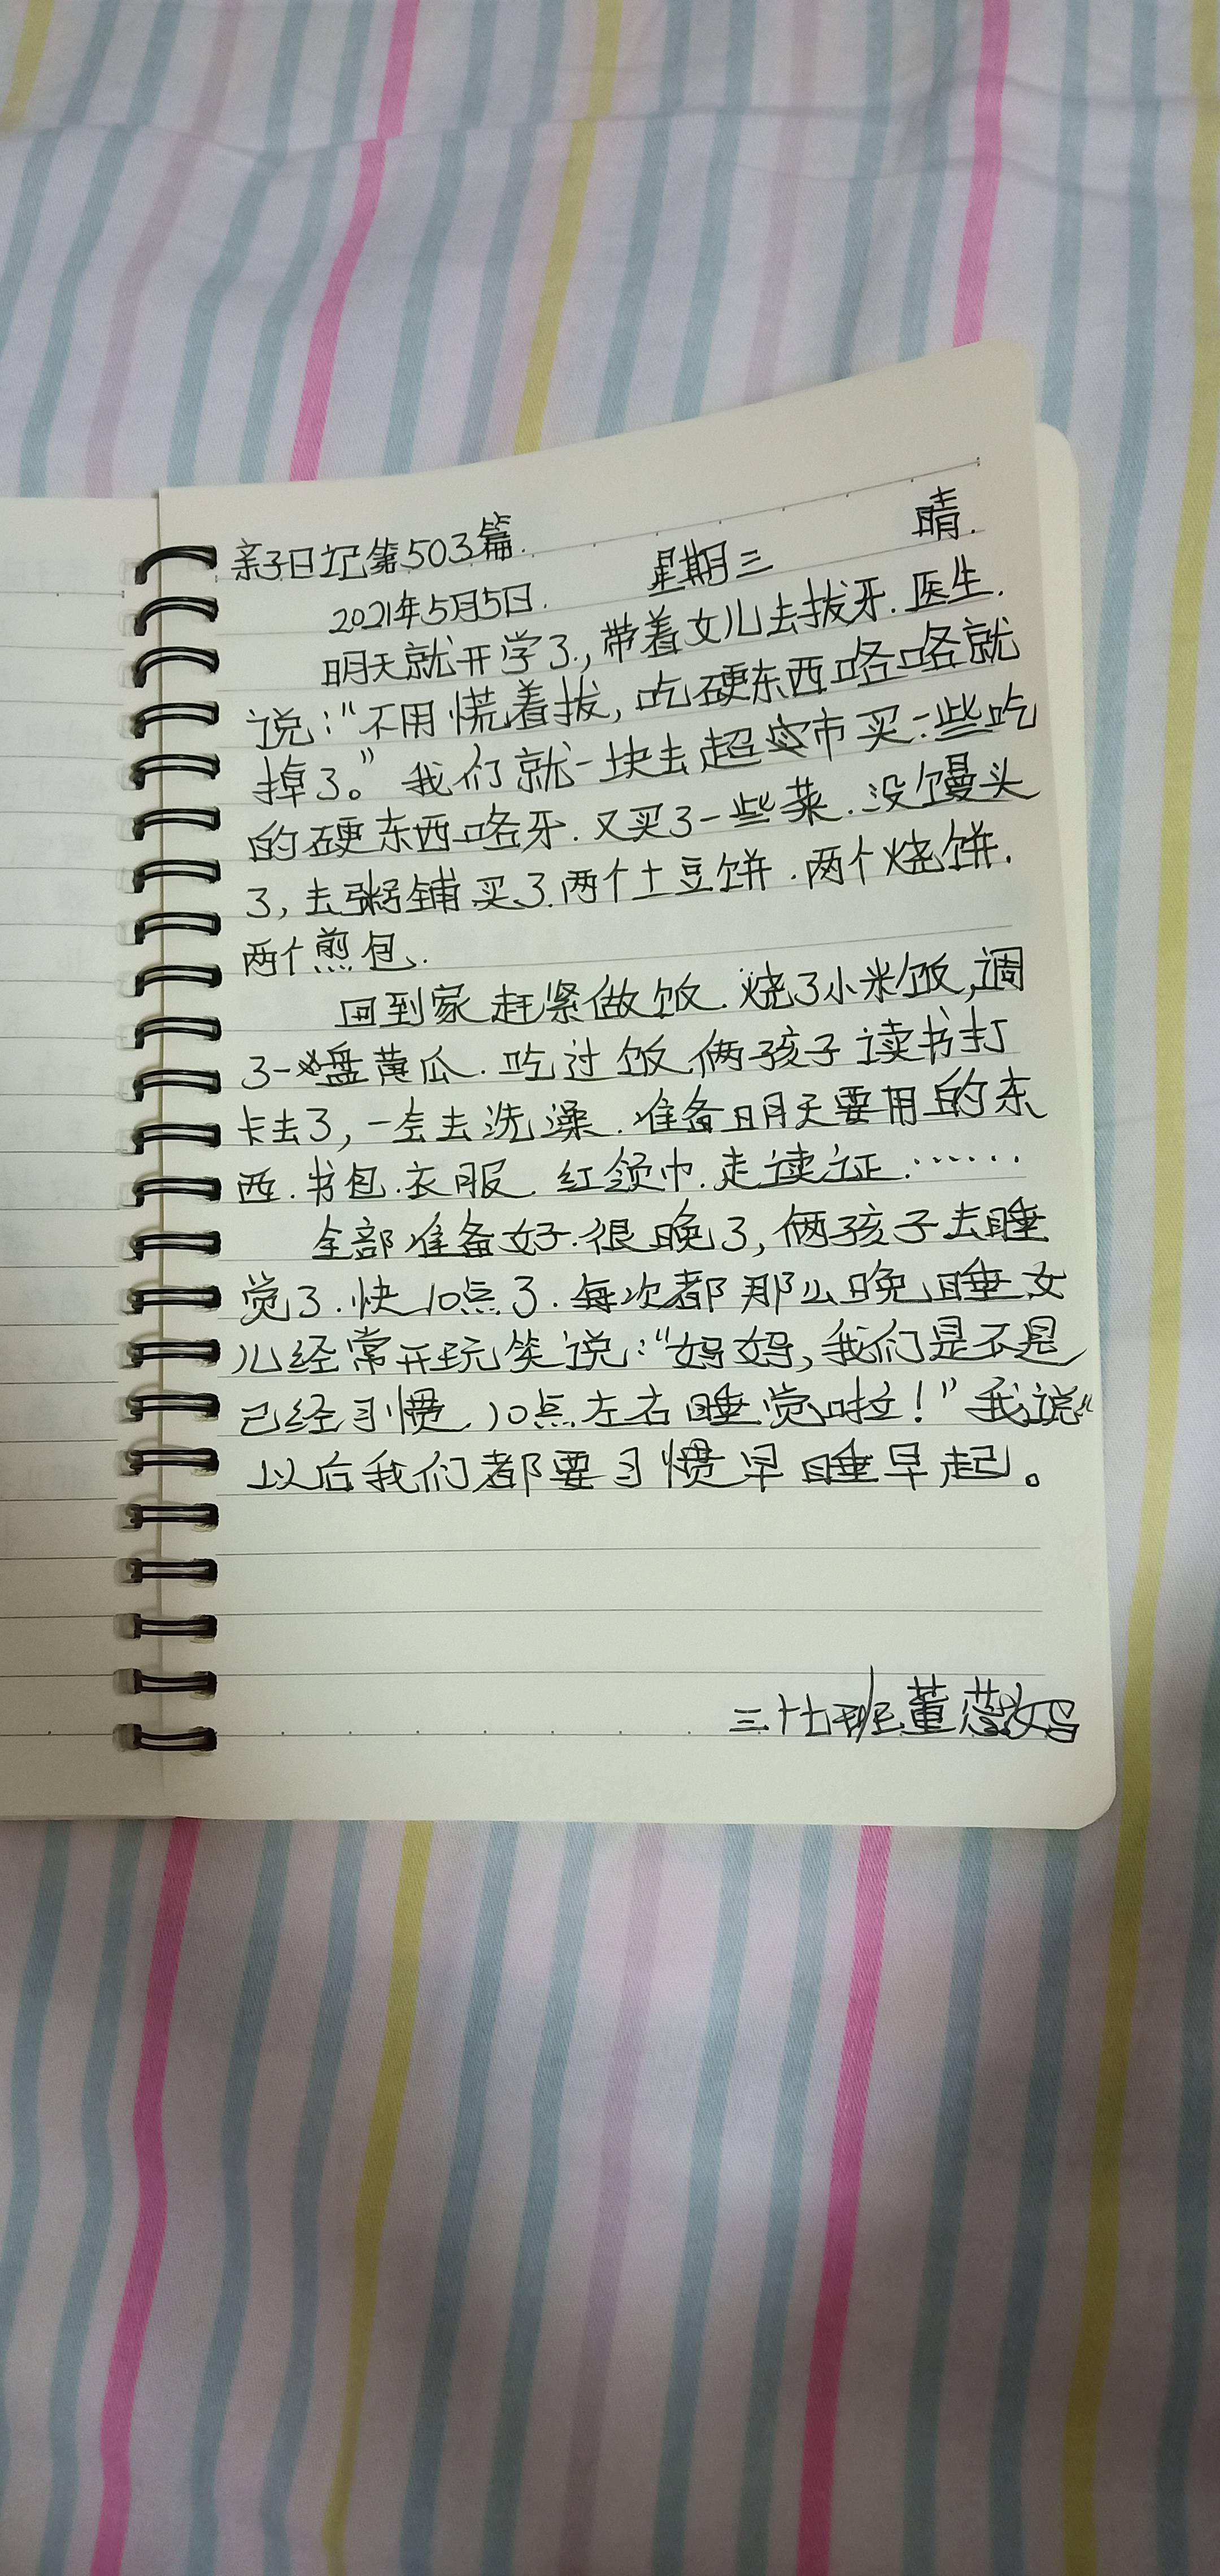 亲子日记第503篇.
2021年5月5日. 星期三 晴.
明天就开学了,带着女儿去拔牙.医生.
说:“不用慌着拔,吃硬东西咯咯就
掉了。”我们就一块去超市买一些吃
的硬东西咯牙.又买了一些菜.没馒头
了,去粥铺买了两个土豆饼.两个烧饼.
两个煎包.
回到家赶紧做饭.烧了小米饭,调
了一盘黄瓜.吃过饭俩孩子读书打
卡去了,一会去洗澡.准备明天要用的东
西.书包.衣服.红领巾.走读证.……
全部准备好.很晚了,俩孩子去睡
觉了.快10点了.每次都那么晚睡女
儿经常开玩笑说:“妈妈,我们是不是
已经习惯10点左右睡觉啦!”我说“
以后我们都要习惯早睡早起。
三十七班董妈